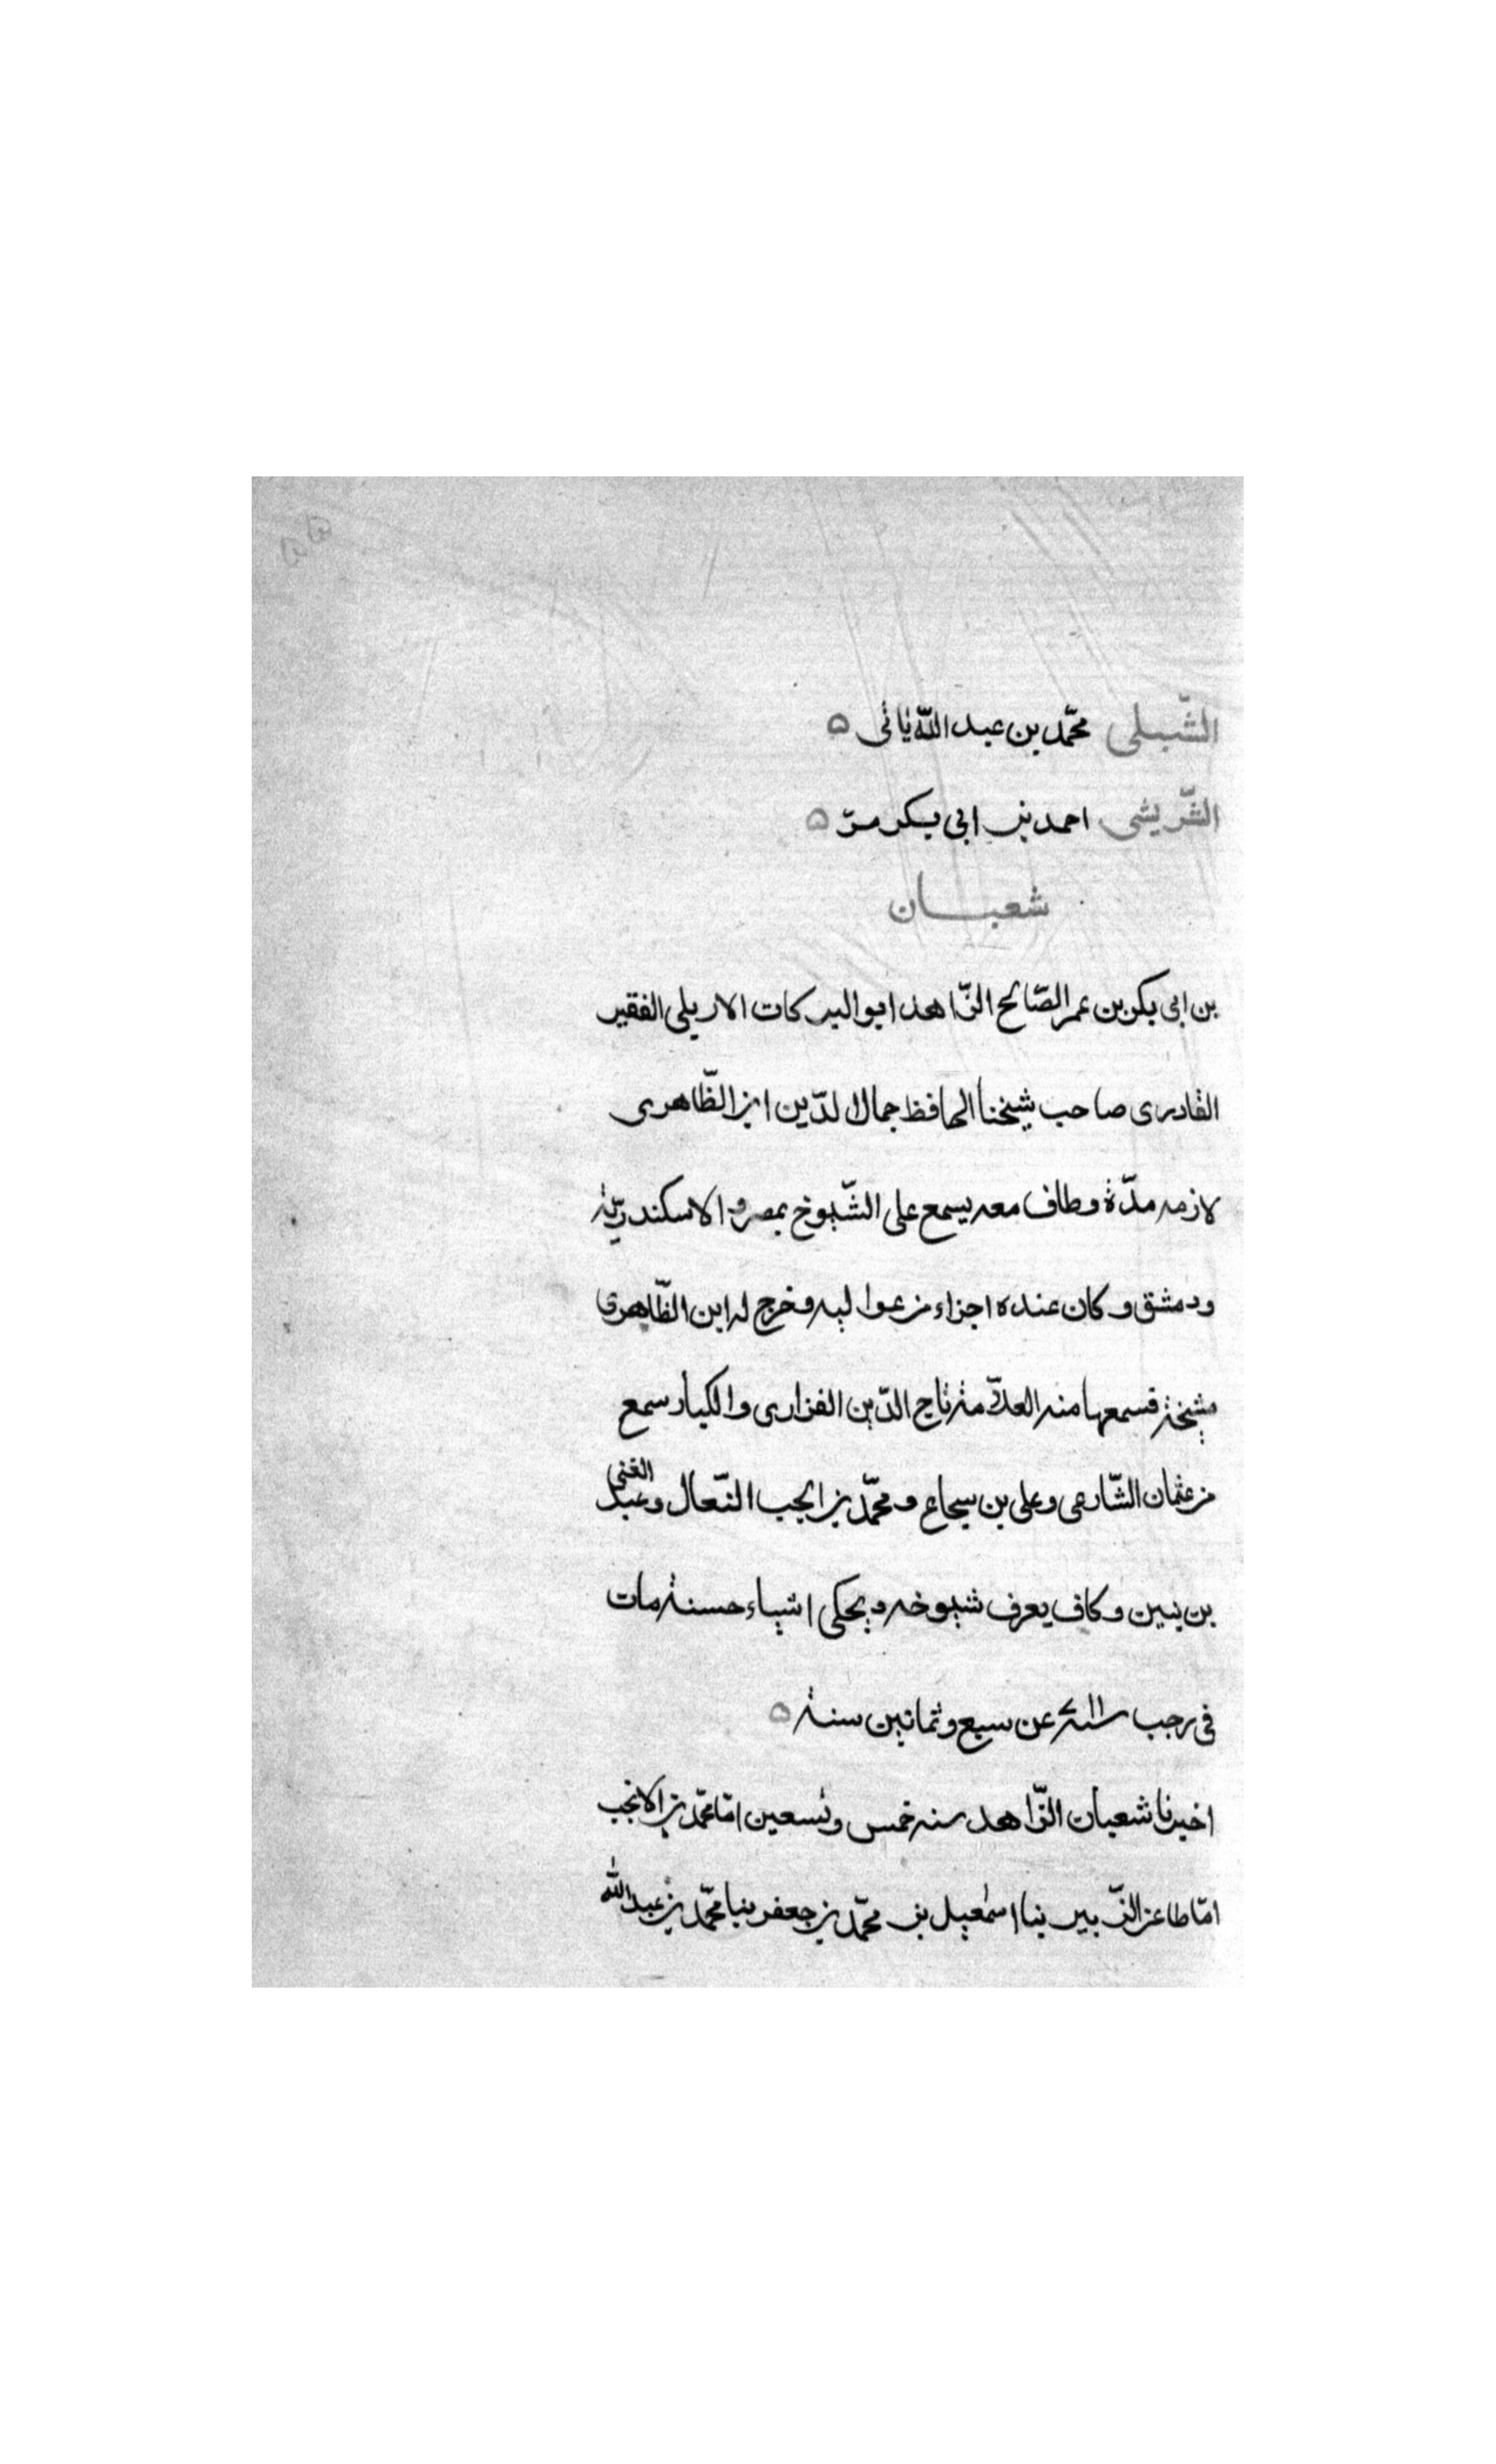 الشّبلى محمّد بن عبد اللّه ياتى ه
الشّريشى احمد بن ابى بكر مرّ ه
شعبان
بن ابى بكر بن عمر الصّالح الزّاهد ابو البركات الاربلى الفقير
القادرى صاحب شيخنا الحافظ جمال الدّين ابن الظّاهرى
لازمه مدّة وطاف معه يسمع على الشّيوخ بمصر والاسكندريّة
ودمشق وكان عنده اجزاء من عواليه وخرج له ابن الظّاهرى
مشيخة فسمعها منه العلّامة تاج الدّين الفزارى والكبار سمع
من عثمان الشّارعى وعلى بن سجاع ومحمّد بن انجب النّعال وعبد الغنى
بن بنين وكان يعرف شيوخه ويحكى اشياء حسنة مات
فى رجب سنة ٧١١ عن سبع وثمانين سنة ه
اخبرنا شعبان الزّاهد سنه خمس وتسعين انا محمّد بن الانجب
انا طاعن الزّبير بنا اسمعيل بن محمّد بن جعفر بنا محمّد بن عبد اللّه